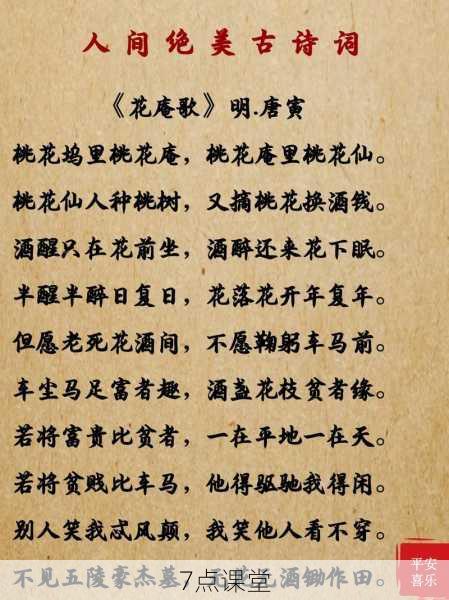 人间绝美古诗词
《花庵歌》明.唐寅
桃花坞里桃花庵，桃花庵里桃花仙。
桃花仙人种桃树，又摘桃花换酒钱。
酒醒只在花前坐，酒醉还来花下眠。
半醒半醉日复日，花落花开年复年。
但愿老死花酒间，不愿鞠躬车马前。
车尘马足富者趣，酒盏花枝贫者缘。
若将富贵比贫者，一在平地一在天。
若将贫贱比车马，他得驱驰我得闲。
别人笑我忒风颠，我笑他人看不穿。
不见五陵豪杰墓，无花无酒锄作田。
平安
喜乐
7点课堂